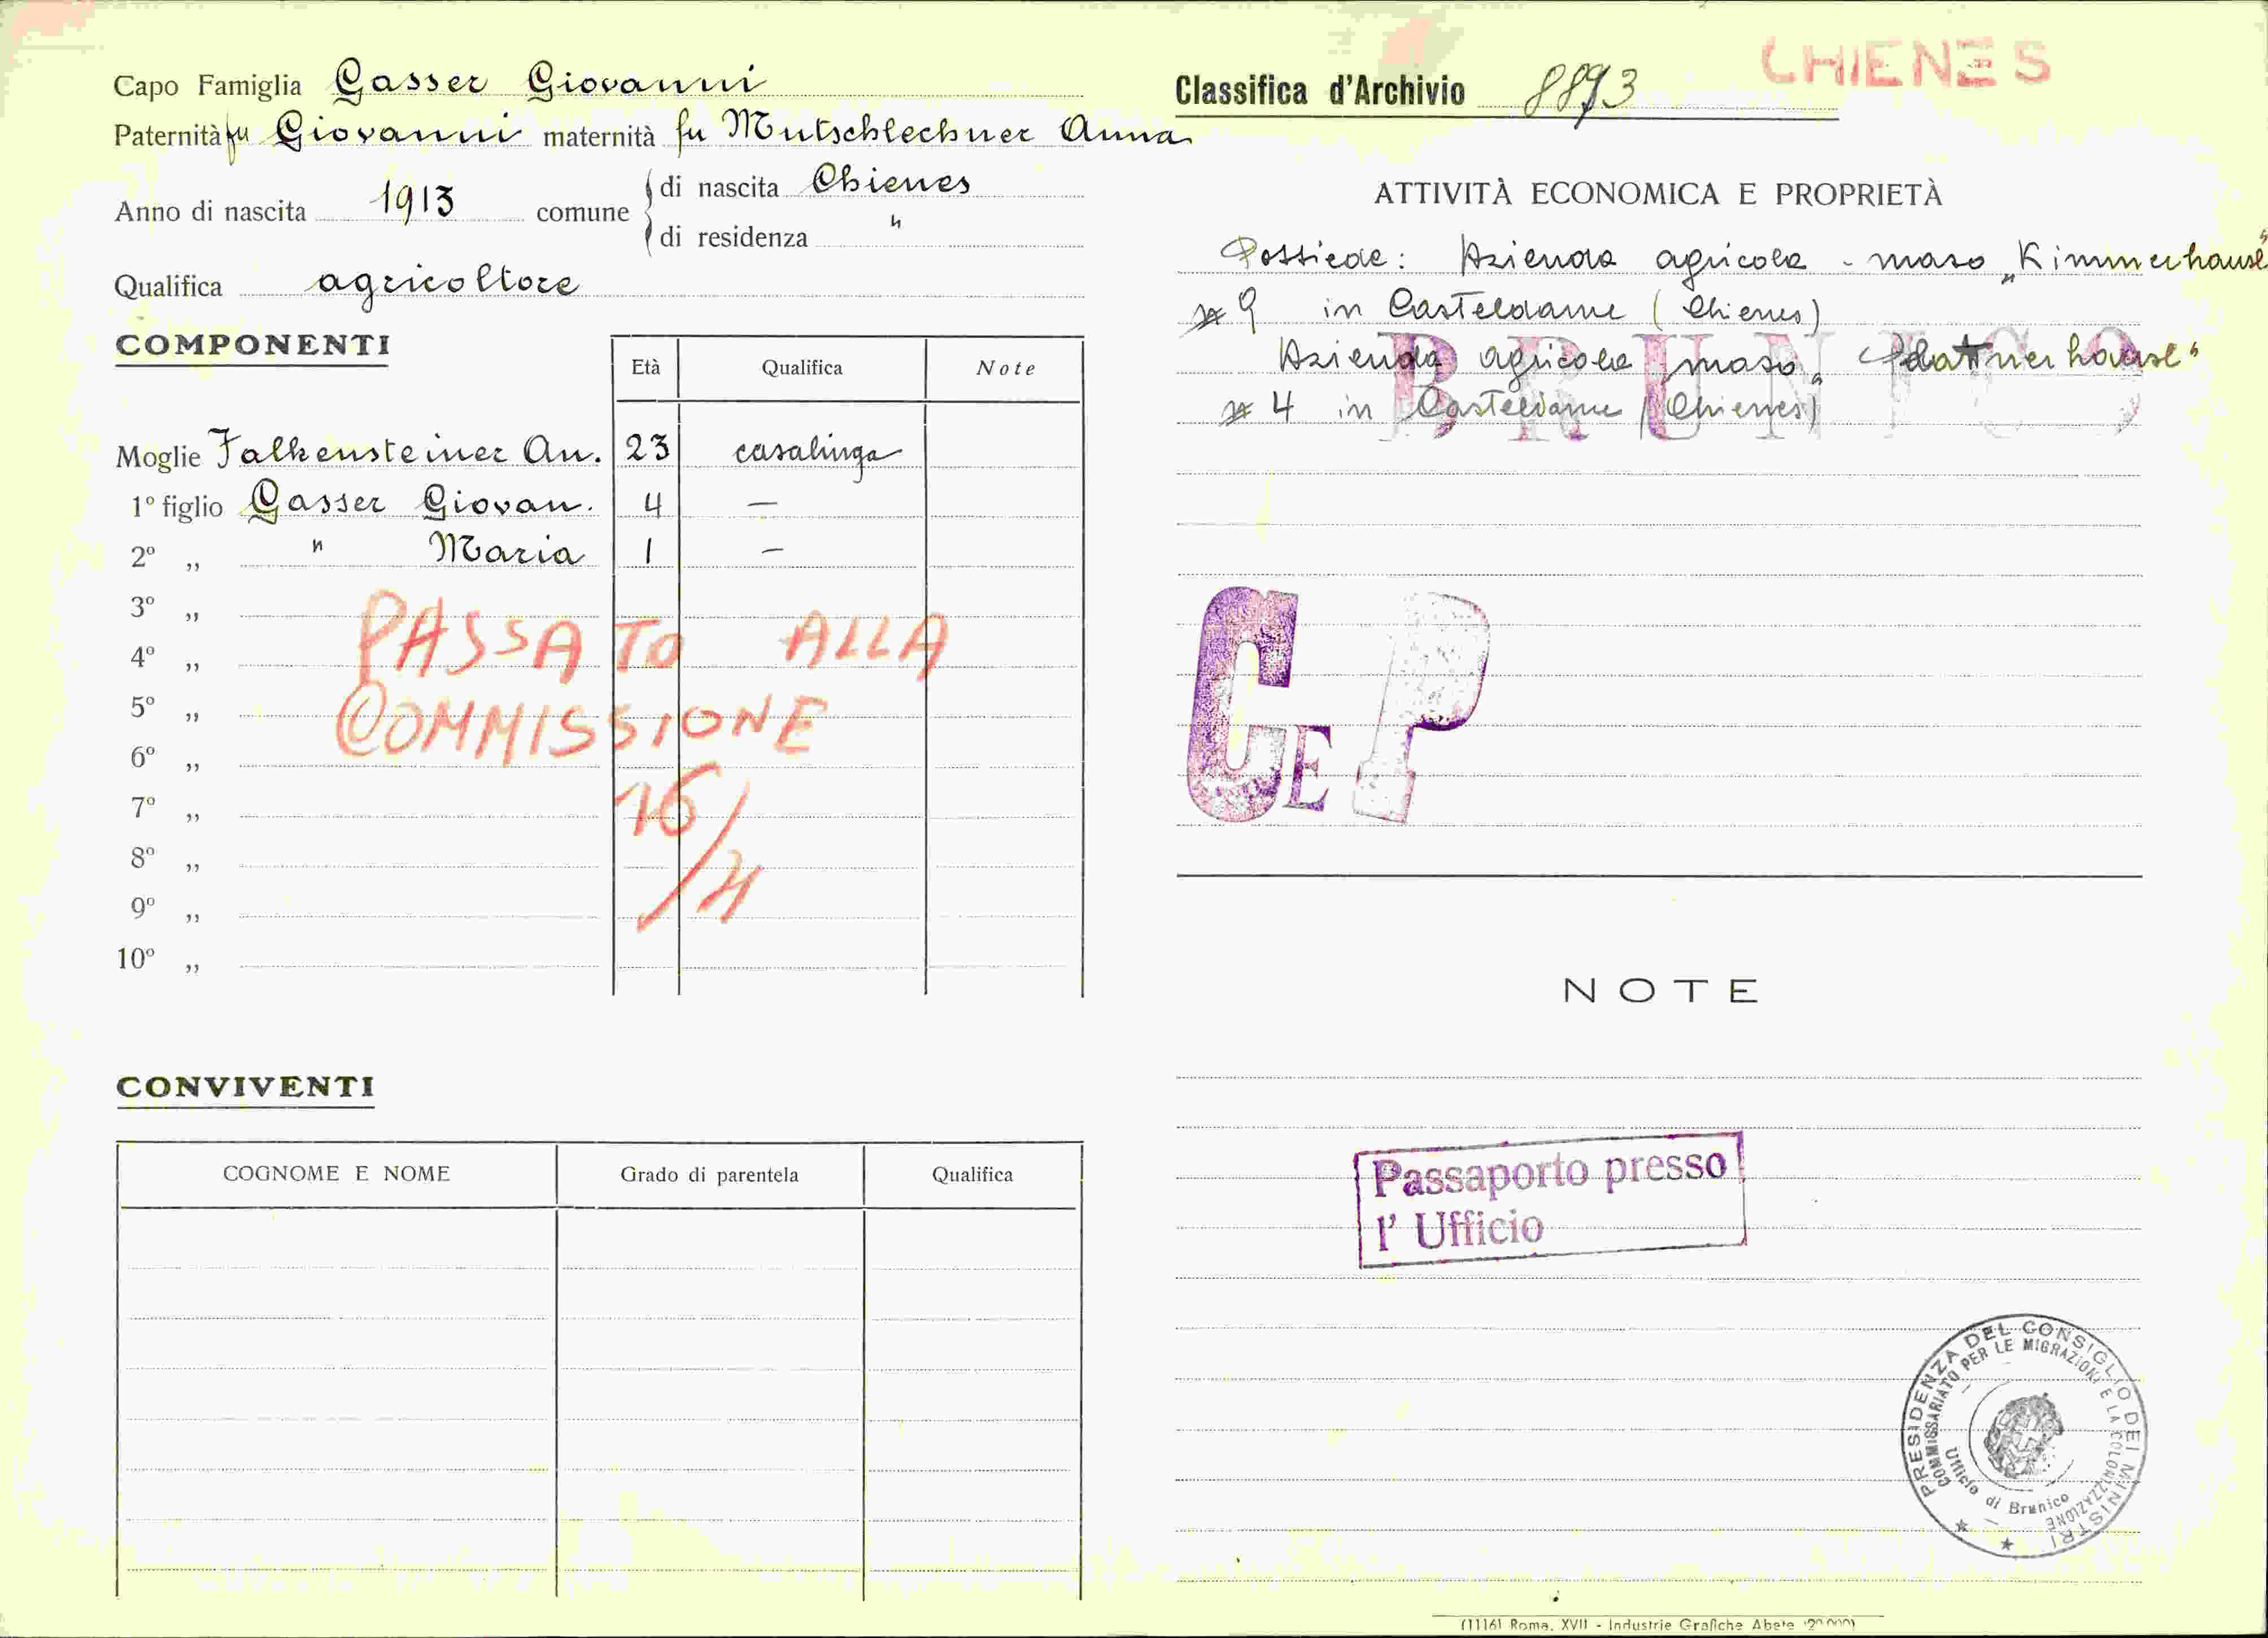 Capo Famiglia Gasser Giovanni
Paternità fu Giovanni maternità fu Mutschlechner Anna
Anno di nascita 1913 comune
di nascita Chienes
di residenza "
Qualifica agricoltore
COMPONENTI
Età Qualifica Note
Moglie Falkensteiner An. 23 casalinga
1º figlio Gasser Giovan. 4 —
2º ,, " Maria 1 —
3º ,,
4º ,,
5º ,,
6º ,,
7º ,,
8º ,,
9º ,,
10º ,,
PASSATO ALLA
COMMISSIONE
16/
CONVIVENTI
COGNOME E NOME Grado di parentela Qualifica
CHIENES
Classifica d'Archivio 8893
ATTIVITÀ ECONOMICA E PROPRIETÀ
Possiede: Azienda agricola - maso „Kimmerhause"
9 in Casteldarne (Chienes)
BRUNICO
Azienda agricola maso „Plattnerhause"
4 in Casteldarne (Chienes)
CEP
NOTE
Passaporto presso
l' Ufficio
PRESIDENZA DEL CONSIGLIO DEI MINISTRI
COMMISSARIATO PER LE MIGRAZIONI E LA COLONIZZAZIONE
Ufficio di Brunico
(1116) Roma, XVII - Industrie Grafiche Abete